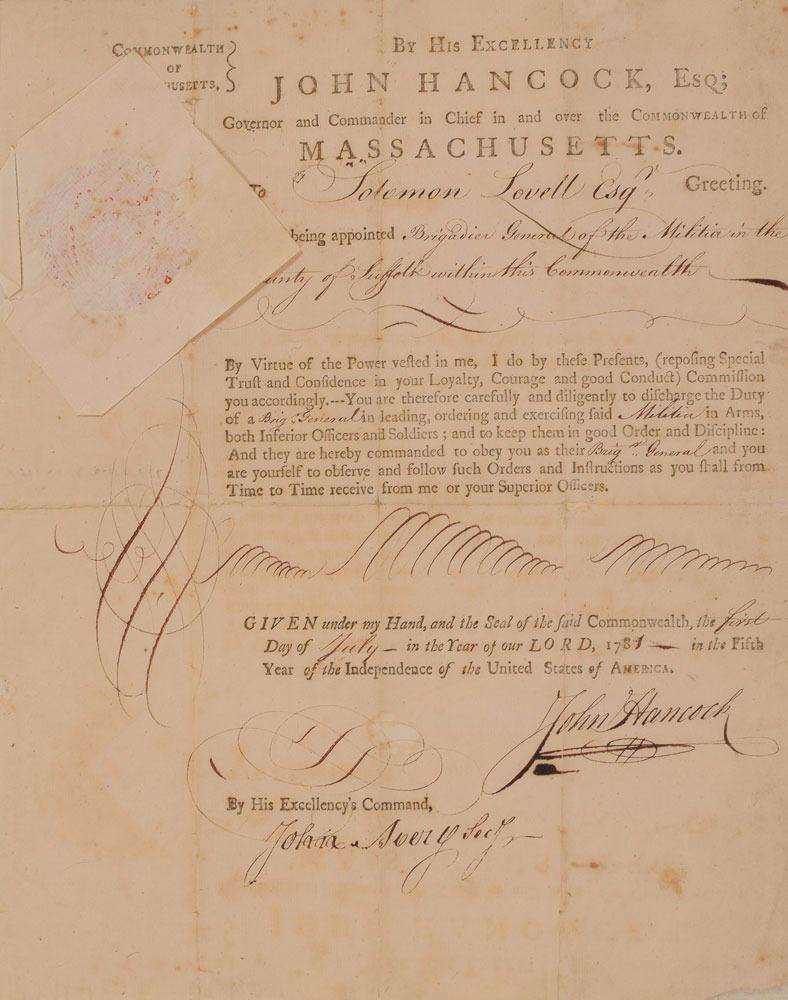 COMMONWEALTH
OF
USETTS,
BY HIS EXCELLENCY
JOHN HANCOCK, Esq;
Governor and Commander in Chief in and over the COMMONWEALTH of
MASSACHUSETTS.
To Solomon Lovell Esqr. Greeting.
being appointed Brigadier General of the Militia in the
unty of Suffolk within this Commonwealth
By Virtue of the Power veſted in me, I do by theſe Preſents, (repoſing Special
Truſt and Confidence in your Loyalty, Courage and good Conduct) Commiſſion
you accordingly.---You are therefore carefully and diligently to diſcharge the Duty
of a Brig. General in leading, ordering and exerciſing ſaid Militia in Arms,
both Inferior Officers and Soldiers ; and to keep them in good Order and Diſcipline :
And they are hereby commanded to obey you as their Brigr. General and you
are yourſelf to obſerve and follow ſuch Orders and Inſtructions as you ſhall from
Time to Time receive from me or your Superior Officers.
GIVEN under my Hand, and the Seal of the ſaid Commonwealth, the first
Day of July in the Year of our LORD, 1781 in the Fifth
Year of the Independence of the United States of AMERICA.
John Hancock
By His Excellency's Command,
John Avery Secy